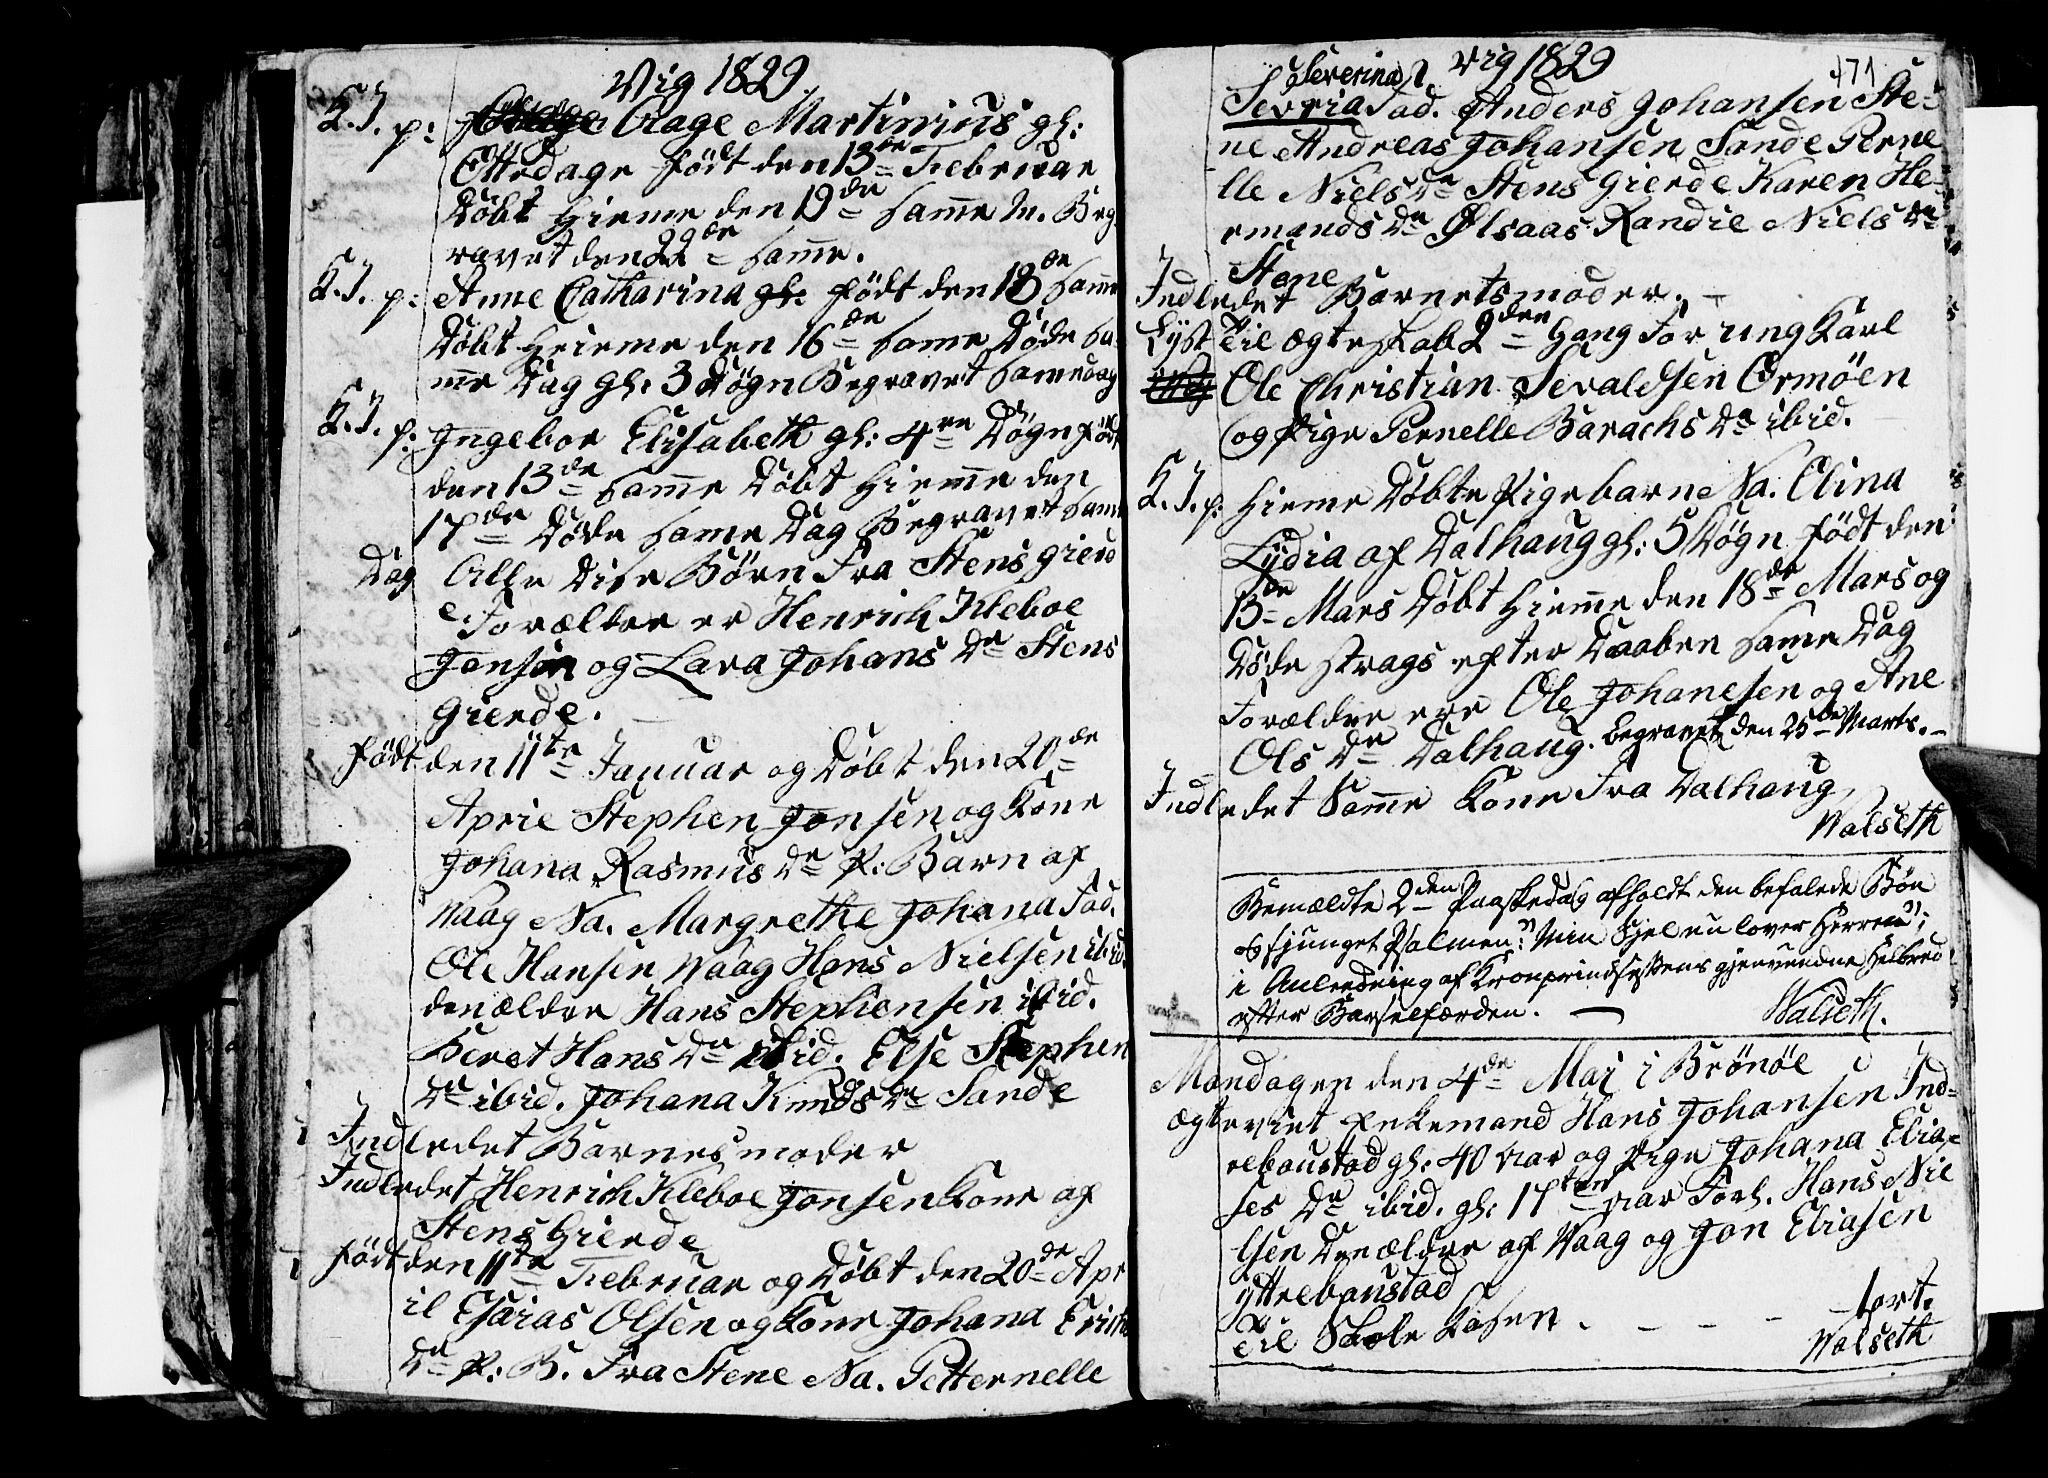 Vig 1829.
K. J. p: Aage Martinius gl:
Ottedage født den 13de Februar
Døbt Hieme den 19de Samme M. Beg
ravet den 22de Same.
K. J. p: Anne Catharina gl: født den 18de Samme
Døbt Heieme den 16de Same Døde Sa
mme Dag gl: 3 Døgn Begravet Samedag
K. J. p: Ingebor Elisabeth gl: 4re Døgn født
den 13de Samme Døbt Hiemme den
17de Døde Same Dag Begravet Same
Dag Alle Dise Børn Fra Stensgierd
e Forælder er Henrich Kleboe
Jonsen og Lava Johans Dr Stens
gierde.
Født den 11te Januar og Døbt den 20de
Aprie Stephen Jonsen og Kone
Johana Rasmus Dr P: Barn af
Vaag Na. Margrethe Johana Fad.
Ole Hansen Vaag Hans Nielsen ibid.
den ældre Hans Stephensen ibid.
Beret Hans Dr ibid. Else Stephen
Dr ibid. Johana Knuds Dr Sande
Indledet Barnesmoder
Indledet Henrich Kleboe Jonsen Kone af
Stens Gierde
Født den 11te Februar og Døbt den 20de Apr
il Esaias Olsen og Kone Johana Erichs
Dr P: B. Fra Stene Na. Petternelle
Vig 1829 171
Severina
Sevria Fad. Anders Johansen Ste-
ne Andreas Johansen Sande Perne
lle Niels Dr Stens Gierde Karen He-
rmands Dr Ølsaas Randie Niels Dr
Stene
Indledet Barnetsmoder.
Lyst Til Ægteskab 2den Gang For ung Karl
Ole Christian Sevaldsen Ormøen
og Pige Pernelle Barachs Dr ibid.
K. J. p: Hieme Døbte Pigebarne Na. Elina
Lydia af Dalhaug gl: 5 Døgn født den
13de Mars Døbt Hiemme den 18de Mars og
Døde strags efter Daaben Same Dag
Forældre ere Ole Johanesen og Ane
Ols Dr Dalhaug. begravet den 25de Marts.
Indledet Samme Kone Fra Dalhaug
Walseth
Bemældte 2den Paaskedag afholdt den befalede Bøn
og sjunget Psalmen: "Min Sjel nu lover Herren";
i Anledning af Kronprindsessens gjenvundne Helbred
efter Barselfærden. Walseth.
Mandagen den 4de Mai i Brønøe
ægteviet Enkemand Hans Johansen Ind-
rebaustad gl: 40 Aar og Pige Johana Elia-
ses Dr ibid. gl: 17ten Aar Forl. Hans Nie
lsen Den ældre af Vaag og Jon Eliasen
yttrebaustad
Til Skole Kasen - - - - 1 ort.
Walseth